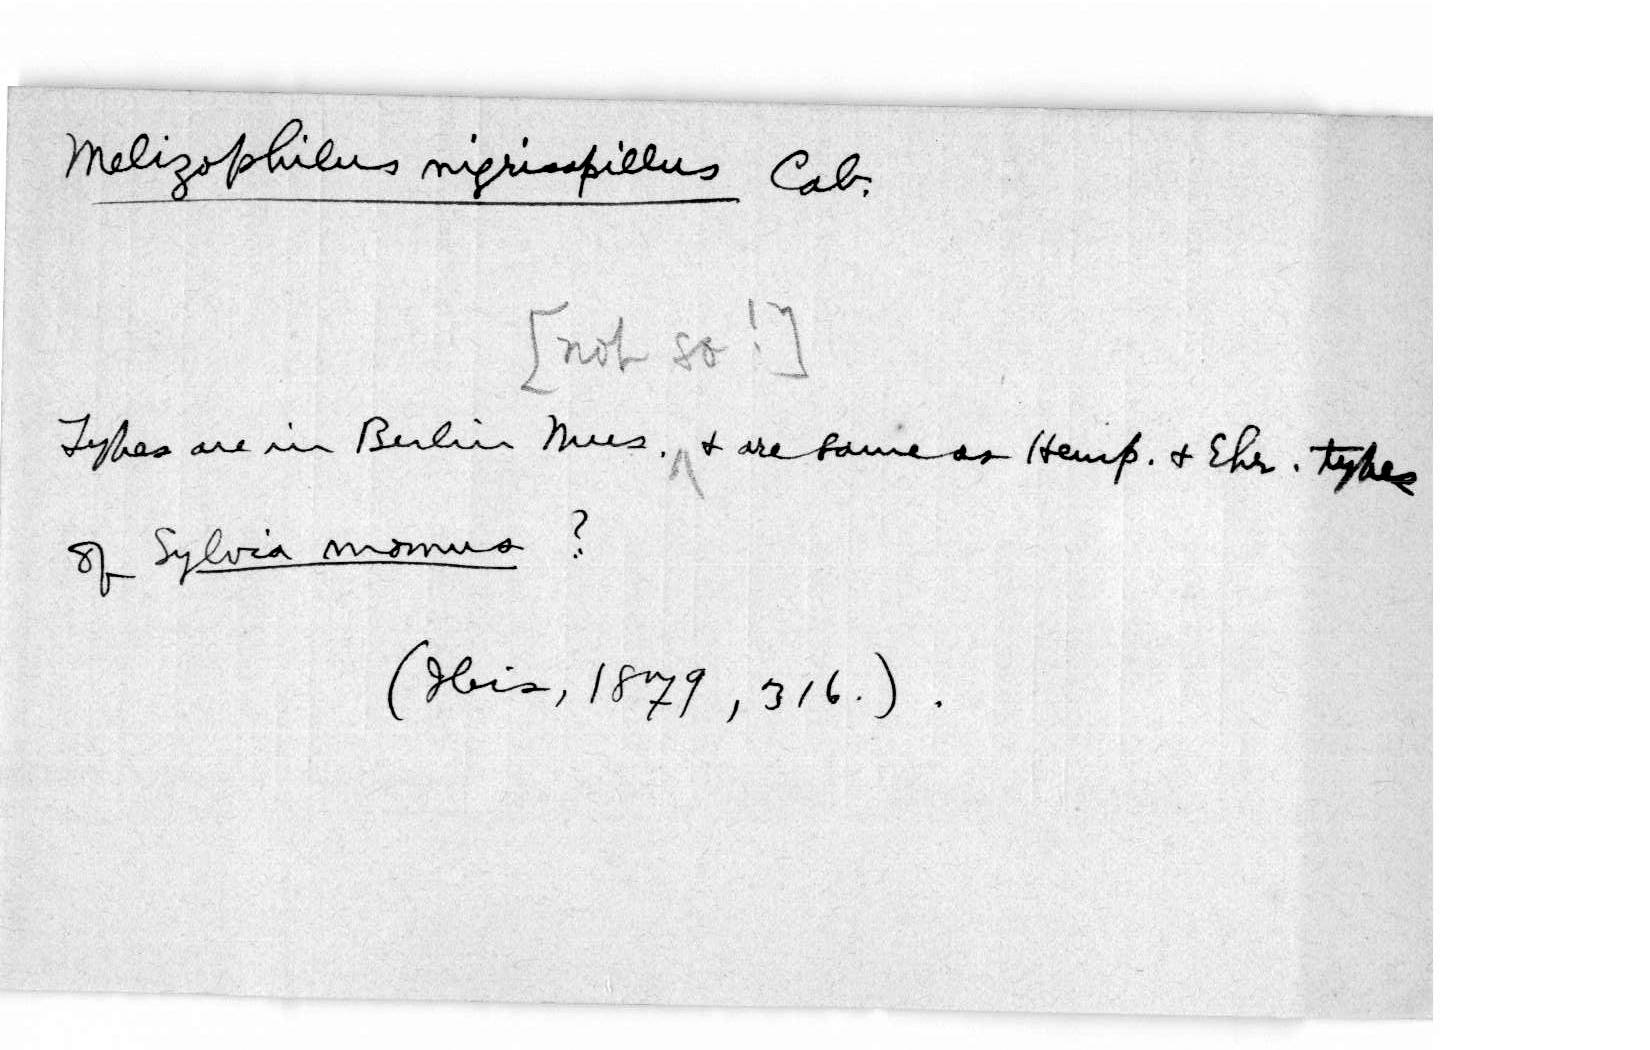 Melizophilus nigricapillus Cab.
[not so!]
Types are in Berlin Mus. ^ & are same as Hemp. & Ehr. types
of Sylvia momus ?
(Ibis, 1879, 316.).